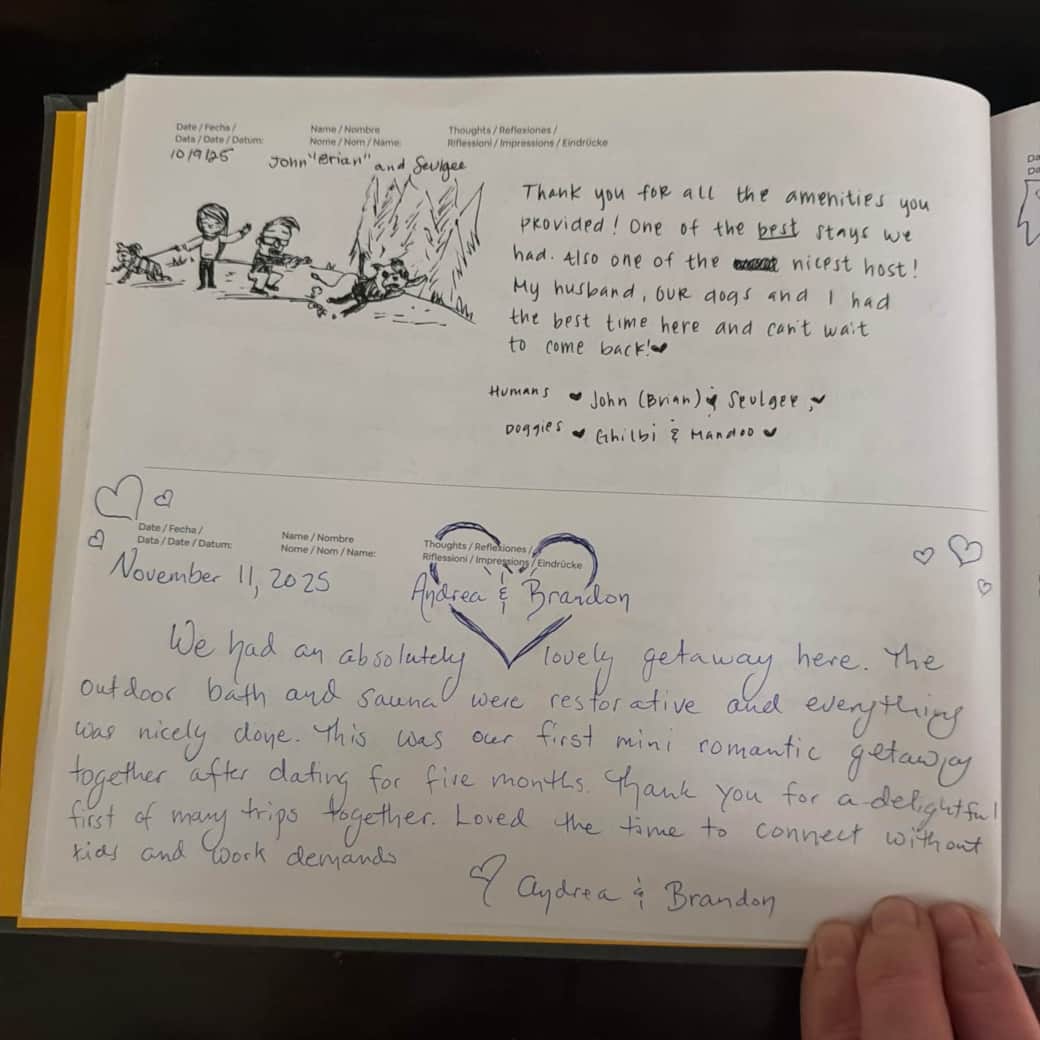 Date / Fecha /
Data / Date / Datum:
Name / Nombre
Nome / Nom / Name:
Thoughts / Reflexiones /
Riflessioni / Impressions / Eindrücke
10/9/25
John "Brian" and Seulgee
Thank you for all the amenities you
provided! One of the best stays we
had. Also one of the nicest host!
My husband, our dogs and I had
the best time here and can't wait
to come back!
Humans ♥ John (Brian) & Seulgee ♥
Doggies ♥ Ghilbi & Mandoo ♥
Date / Fecha /
Data / Date / Datum:
Name / Nombre
Nome / Nom / Name:
Thoughts / Reflexiones /
Riflessioni / Impressions / Eindrücke
November 11, 2025
Andrea & Brandon
We had an absolutely lovely getaway here. The
outdoor bath and sauna were restorative and everything
was nicely done. This was our first mini romantic getaway
together after dating for five months. Thank you for a delightful
first of many trips together. Loved the time to connect without
kids and work demands
Andrea & Brandon
Da
Da